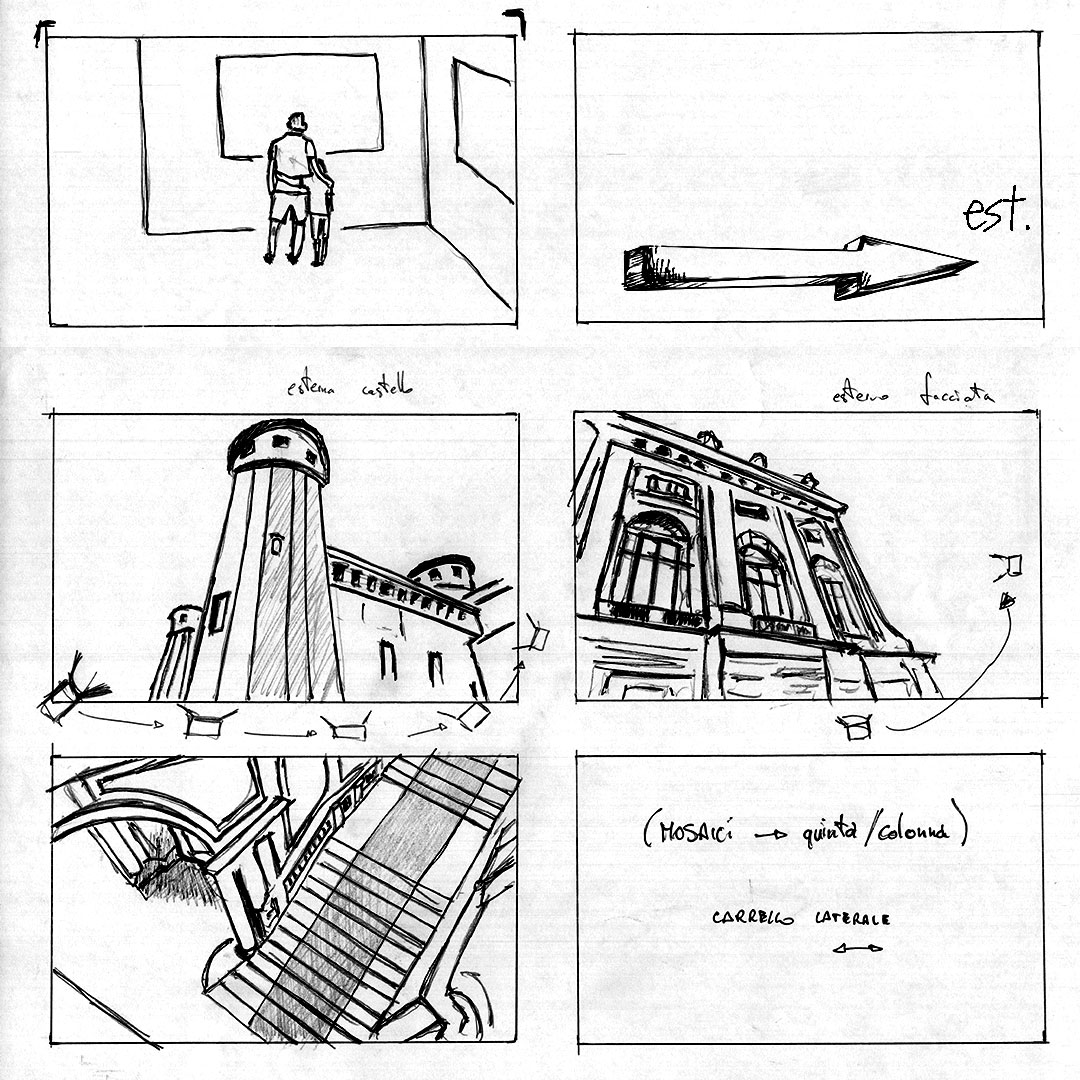 est.
esterno castello
esterno facciata
(MOSAICI → quinta/colonna)
CARRELLO LATERALE
↔